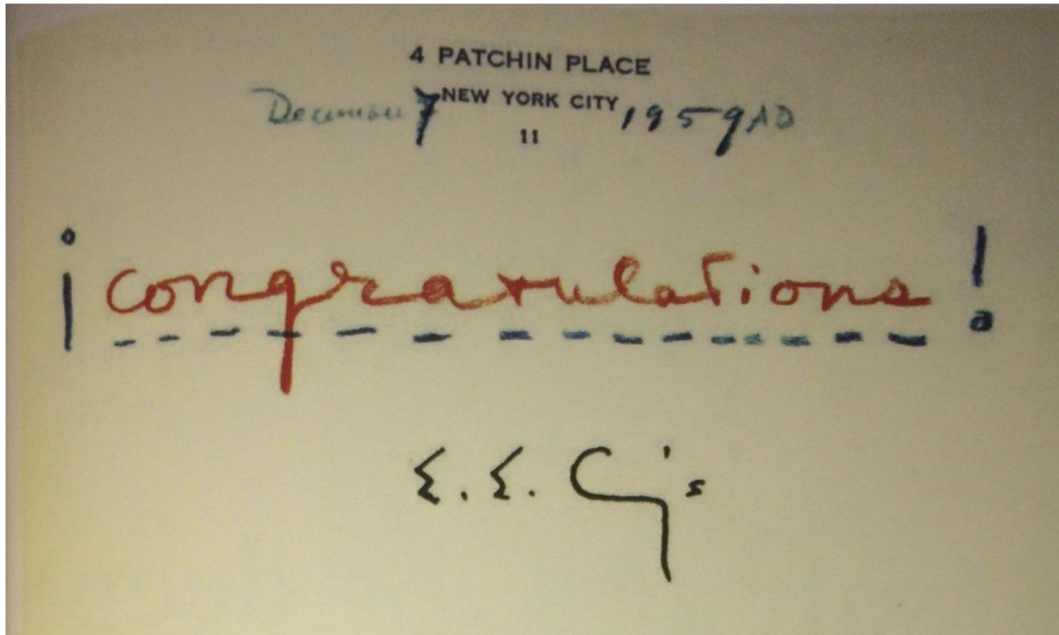 4 PATCHIN PLACE
NEW YORK CITY
December 7 1959 AD
11
¡congratulations!
E. E. C'gs